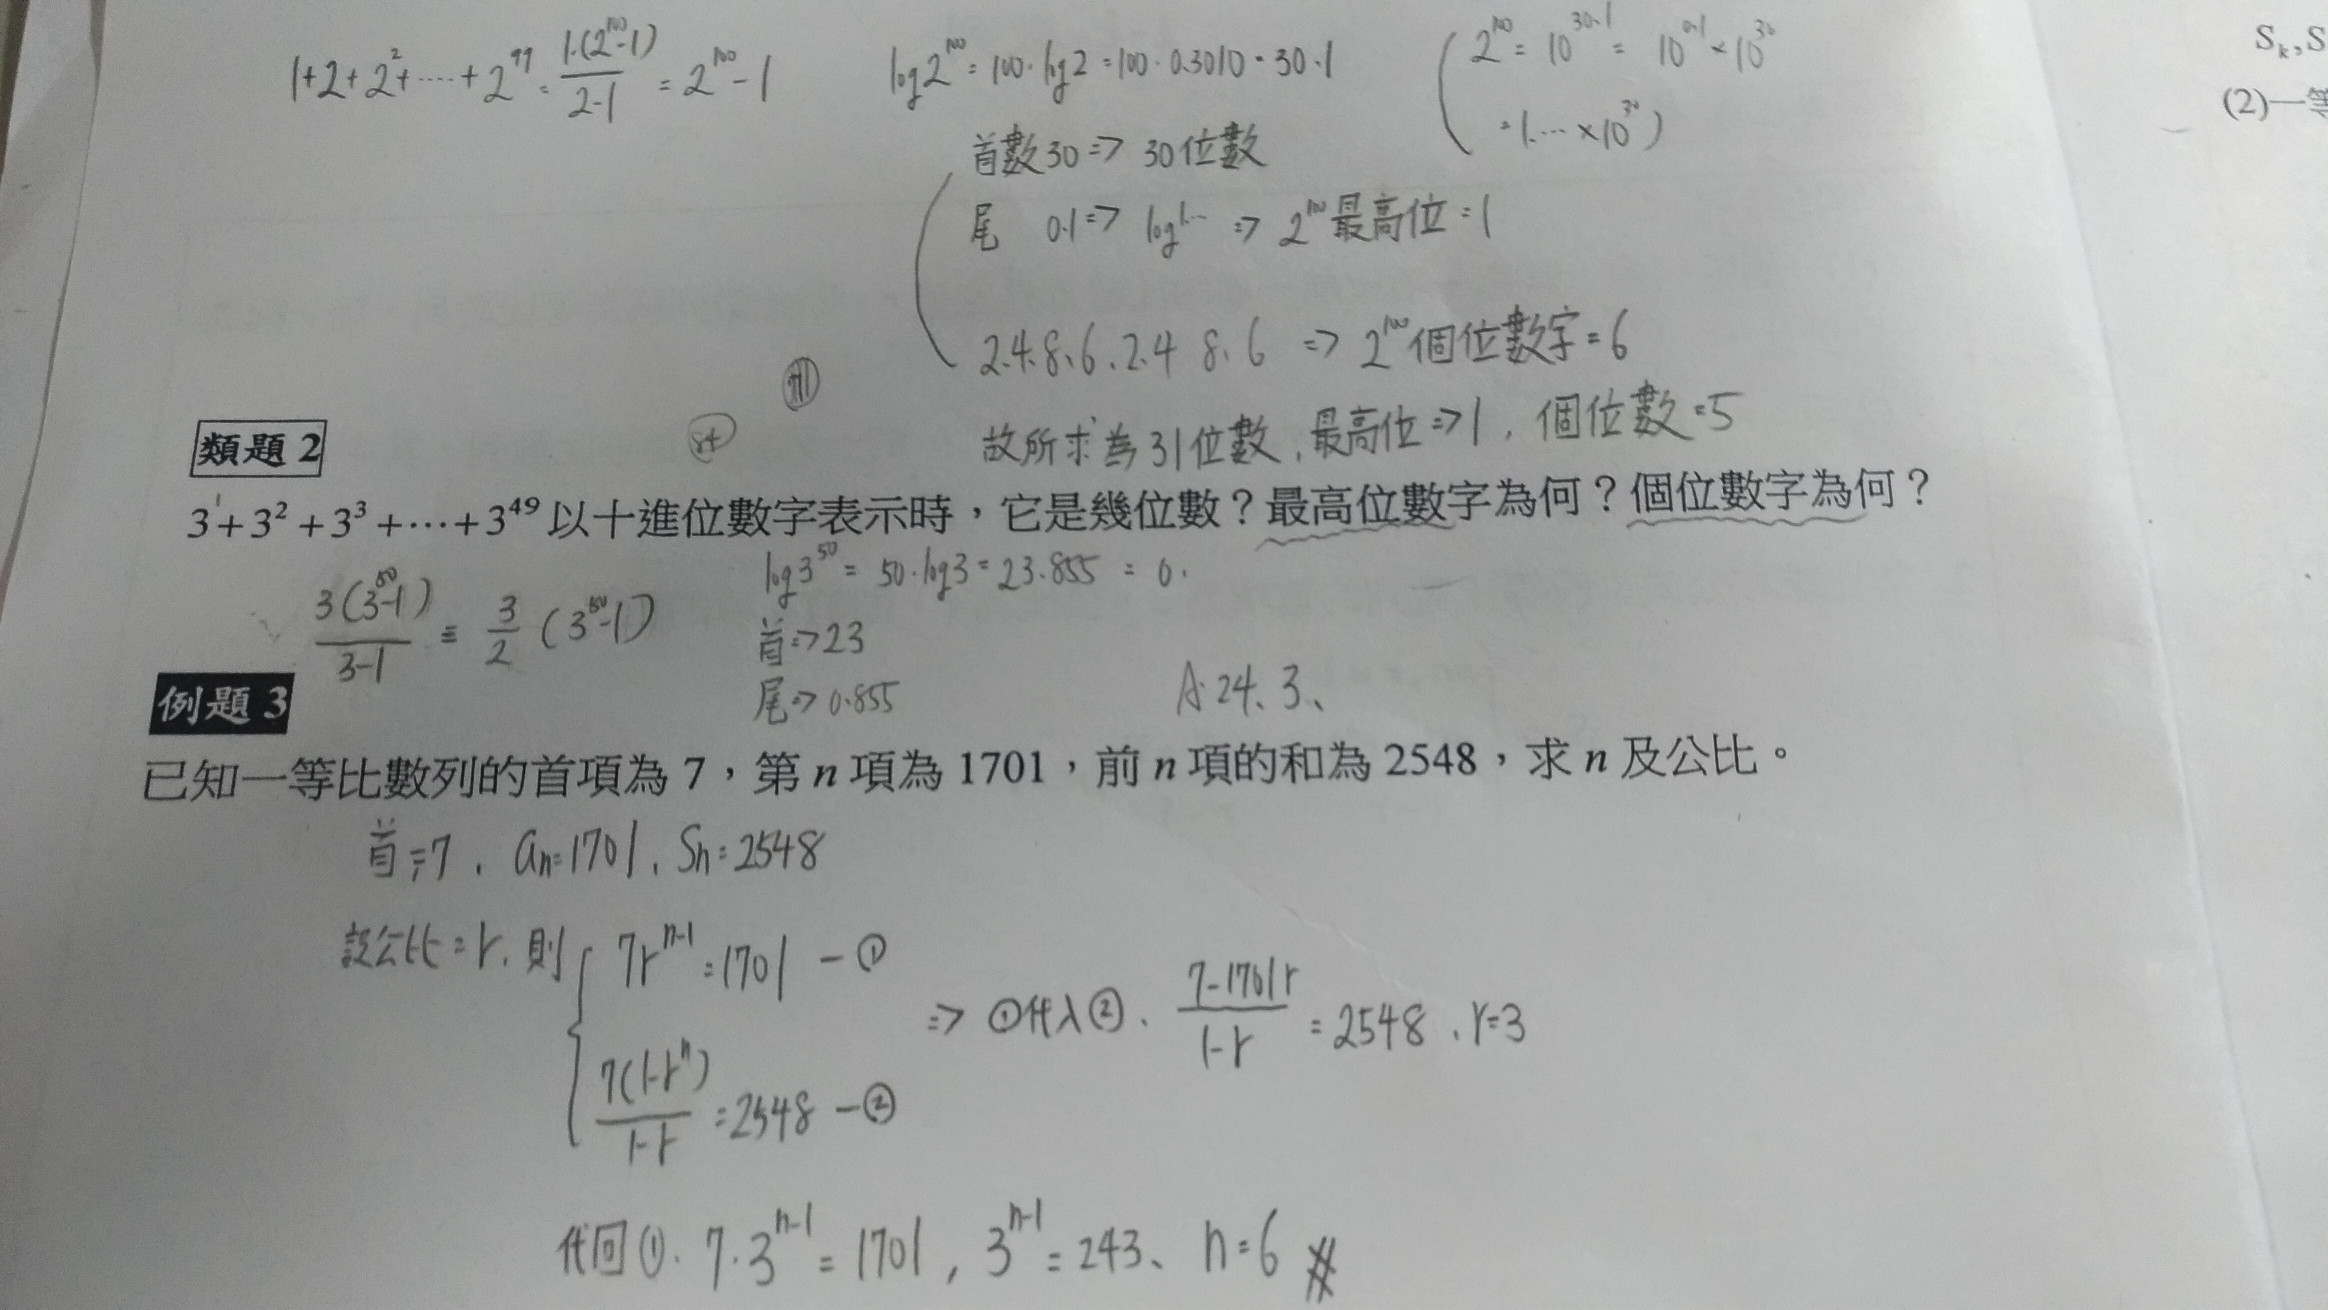 1+2+2²+……+2⁹⁹=1·(2¹⁰⁰-1)/2-1=2¹⁰⁰-1
log2¹⁰⁰=100·log2=100·0.3010=30.1
(2¹⁰⁰=10³⁰·¹=10⁰·¹×10³⁰
=1.…×10³⁰)
首數30=>30位數
尾 0.1=>log1…=>2¹⁰⁰最高位=1
2.4.8.6.2.4 8.6 =>2¹⁰⁰個位數字=6
故所求為31位數,最高位=>1,個位數=5
類題2
3¹+3²+3³+⋯+3⁴⁹以十進位數字表示時,它是幾位數?最高位數字為何?個位數字為何?
3(3⁵⁰-1)/3-1=3/2(3⁵⁰-1)
log3⁵⁰=50·log3=23.855=0.
首=>23
尾=>0.855
A:24、3、
例題3
已知一等比數列的首項為7,第n項為1701,前n項的和為2548,求n及公比。
首=7,aₙ=1701,Sₙ=2548
設公比=r,則{7rⁿ⁻¹=1701-①
7(1-rⁿ)/1-r=2548-②
=>①代入②、7-1701r/1-r=2548,r=3
代回①.7·3ⁿ⁻¹=1701,3ⁿ⁻¹=243、n=6#
Sₖ,S
(2)一等